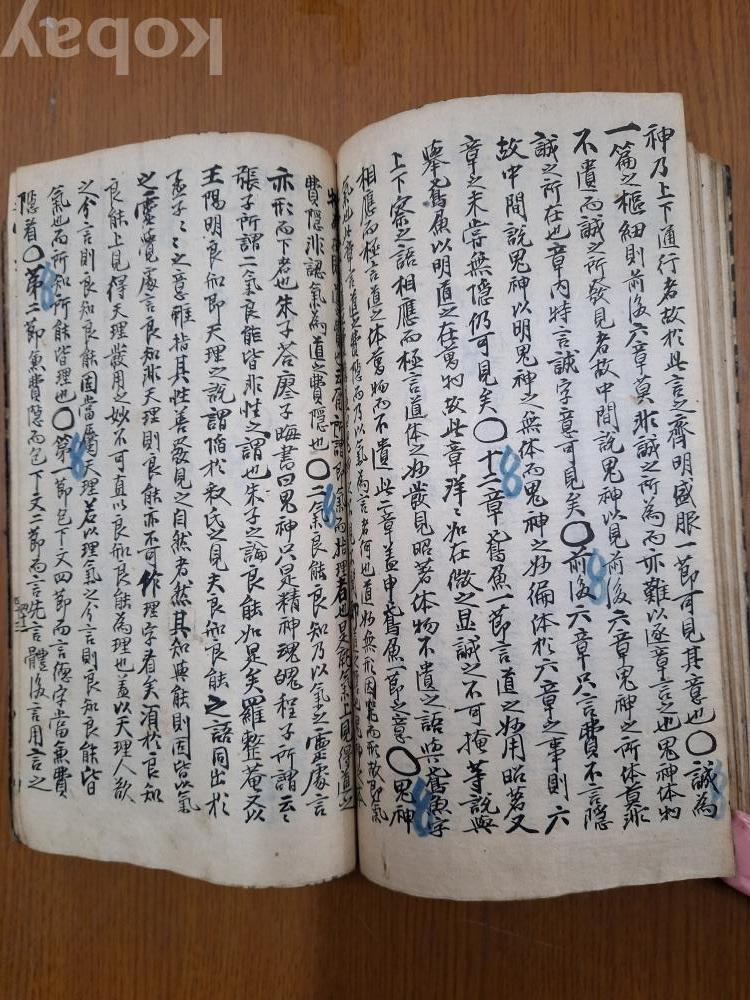 神乃上下通行者故於此言之齊明盛服一節可見其章意也〇誠為
一篇之樞細則前後六章莫非誠之所為而亦難以逐章言之也鬼神体物
不遺而誠之所發見者故中間說鬼神以見前後六章鬼神之所体莫非
誠之所在也章內特言誠字意可見矣〇前後六章只言費不言隱
故中間說鬼神以明鬼神之無体而鬼神之妙徧体於六章之事則六
章之未嘗無隱仍可見矣〇十二章鳶魚一節言道之妙用昭著又
擧鳶魚以明道之在萬物故此章洋洋如在微之显誠之不可掩等說與
上下察之語相應而極言道体之妙發見昭著体物不遺之語與鳶魚字
相應而極言道之体萬物而不遺此二章盖申鳶魚一節之意〇鬼神
費隱非認氣為道之費隱也〇二氣良能良知乃以氣之靈處言
亦形而下者也朱子答廖子晦書曰鬼神只是精神魂魄程子所謂云云
張子所謂二氣良能皆非性之謂也朱子之論良能如是矣羅整菴又以
王陽明良知即天理之說謂陷於釋氏之見夫良知良能之語同出於
孟子孟子之意雖指其性善發見之自然者然其知與能則固皆以氣
之靈覺處言良知非天理則良能亦不可作理字看矣須於良知
良能上見得天理發用之妙不可直以良知良能為理也盖以天理人欲
之分言則良知良能固當屬天理若以理氣之分言則良知良能皆
氣也而所知所能皆理也〇第一節包下文四節而言德字當兼費
隱看〇第二節兼費隱而包下文二節而言先言體後言用言之
kobay